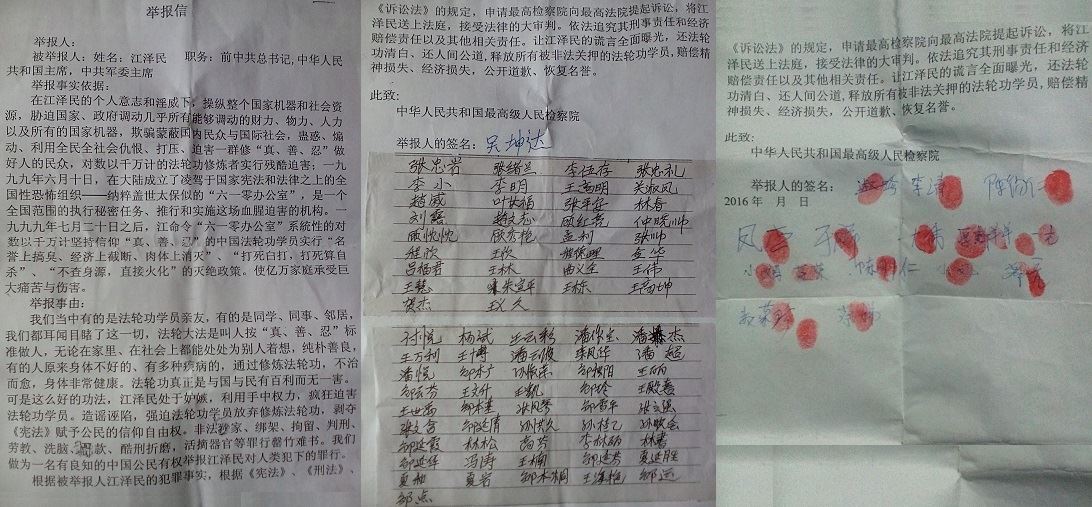 举报信
举报人:
被举报人:姓名:江泽民 职务:前中共总书记,中华人民
共和国主席,中共军委主席
举报事实依据:
在江泽民的个人意志和淫威下,操纵整个国家机器和社会资
源,胁迫国家、政府调动几乎所有能够调动的财力、物力、人力
以及所有的国家机器,欺骗蒙蔽国内民众与国际社会,蛊惑、煽
动、利用全民全社会仇恨、打压、迫害一群修“真、善、忍”做
好人的民众,对数以千万计的法轮功修炼者实行残酷迫害;一九
九九年六月十日,在大陆成立了凌驾于国家宪法和法律之上的全
国性恐怖组织——纳粹盖世太保似的“六一零办公室”,是一个
全国范围的执行秘密任务、推行和实施这场血腥迫害的机构。一
九九九年七月二十日之后,江命令“六一零办公室”系統性的对
数以千万计坚持信仰“真、善、忍”的中国法轮功学员实行“名
誉上搞臭、经济上截断、肉体上消灭”、“打死白打,打死算自
杀”、“不查身源,直接火化”的灭绝政策。使亿万家庭承受巨
大痛苦与伤害。
举报事由:
我们当中有的是法轮功学员亲友,有的是同学、同事、邻居,
我们都耳闻目睹了这一切,法轮大法是叫人按“真、善、忍”标
准做人,无论在家里、在社会上都能处处为别人着想,纯朴善良,
有的人原来身体不好的、有多种疾病的,通过修炼法轮功,不治
而愈,身体非常健康。法轮功真正是与国与民有百利而无一害。
可是这么好的功法,江泽民处于妒嫉,利用手中权力,疯狂迫害
法轮功学员。造谣诬陷,强迫法轮功学员放弃修炼法轮功,剥夺
《宪法》赋予公民的信仰自由权。非法抄家、绑架、拘留、判刑、
劳教、洗脑、罚款、酷刑折磨,活摘器官等罪行罄竹难书。我们
做为一名有良知的中国公民有权举报江泽民对人类犯下的罪行。
根据被举报人江泽民的犯罪事实,根据《宪法》、《刑法》、
《诉讼法》的规定,申请最高检察院向最高法院提起诉讼,将江
泽民送上法庭,接受法律的大审判。依法追究其刑事责任和经济
赔偿责任以及其他相关责任。让江泽民的谎言全面曝光,还法轮
功清白、还人间公道,释放所有被非法关押的法轮功学员,赔偿精
神损失、经济损失,公开道歉、恢复名誉。
此致:
中华人民共和国最高级人民检察院
举报人的签名:吴坤达
张忠岩 张绪兰 李任存 张忠礼
李小 李明 王尚明 关淑凤
赵威 叶世福 张平安 林春
刘磊 赵文志 顾红亮 仲晓帅
顾忱忱 欣秀艳 孟利 张帅
程欣 王欣 金华
吕福君 王林 曲义全 王伟
王慧 朱宝平 王栋 王尚坤
贺杰 王久
付悦 杨斌 潘杰
王万利 王博 潘云俊 李凤华 潘超
潘悦 邹木广 孙振东 邹朝阳 王丽
邹云芬 王文升 王凯 邹玲 王殿慧
王世西 邹本奎 张凤琴 邹雪平 张立强
张文会 邹延清 孙洪久 孙桂乙 孙晓会
邹延霞 林松 高芬 李林丽 林春
邹延华 冯涛 王楠 邹廷芳 夏进胜
夏柏 夏岩 邹木桐 王海艳 邹远
邹点
《诉讼法》的规定,申请最高检察院向最高法院提起诉讼,将江
泽民送上法庭,接受法律的大审判。依法追究其刑事责任和经济
赔偿责任以及其他相关责任。让江泽民的谎言全面曝光,还法轮
功清白、还人间公道,释放所有被非法关押的法轮功学员,赔偿精
神损失、经济损失,公开道歉、恢复名誉。
此致:
中华人民共和国最高级人民检察院
举报人的签名:
2016年 月 日